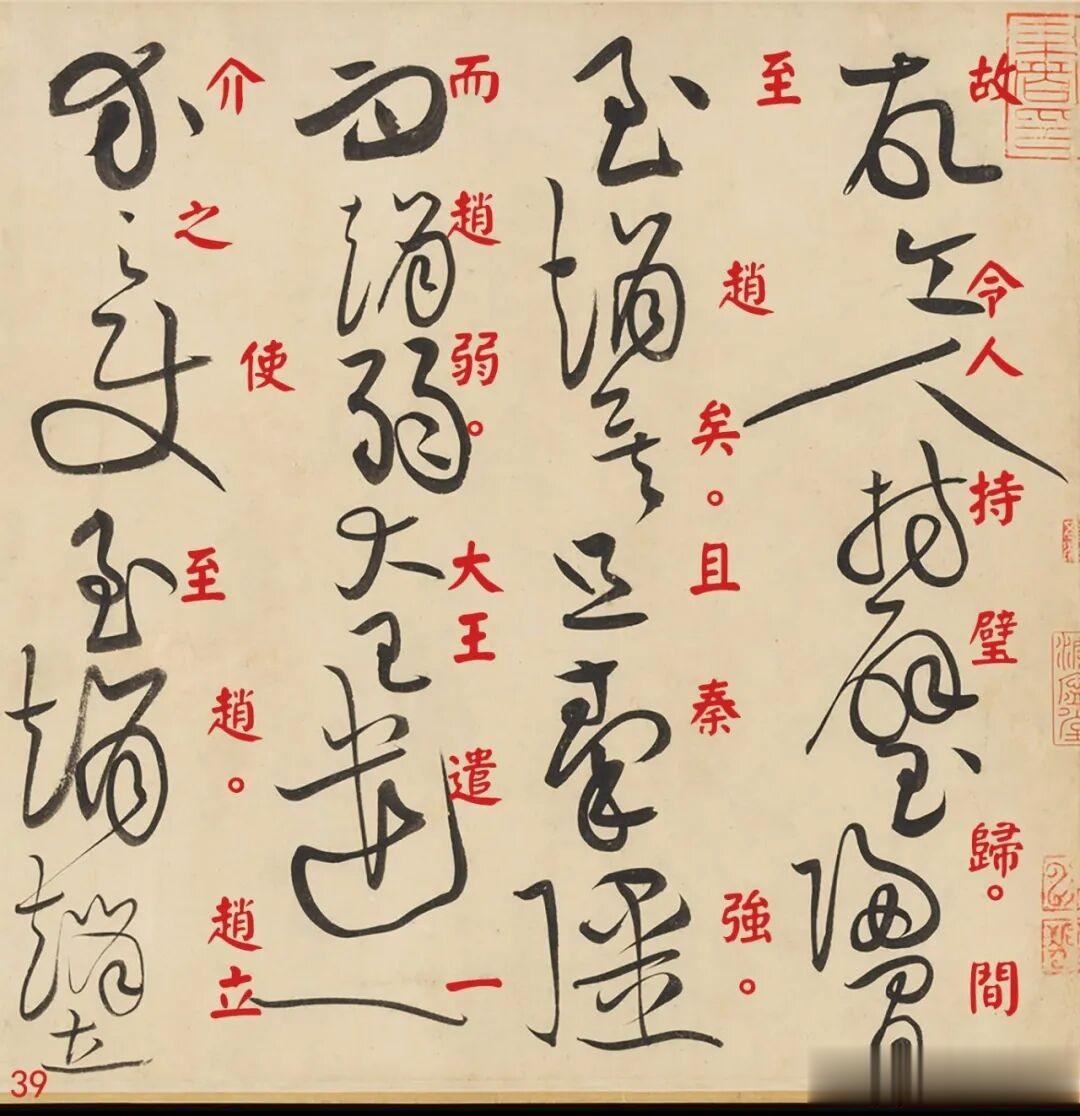 故令人持璧歸。間
至趙矣。且秦強。
而趙弱。大王遣一
介之使至趙。趙立
39